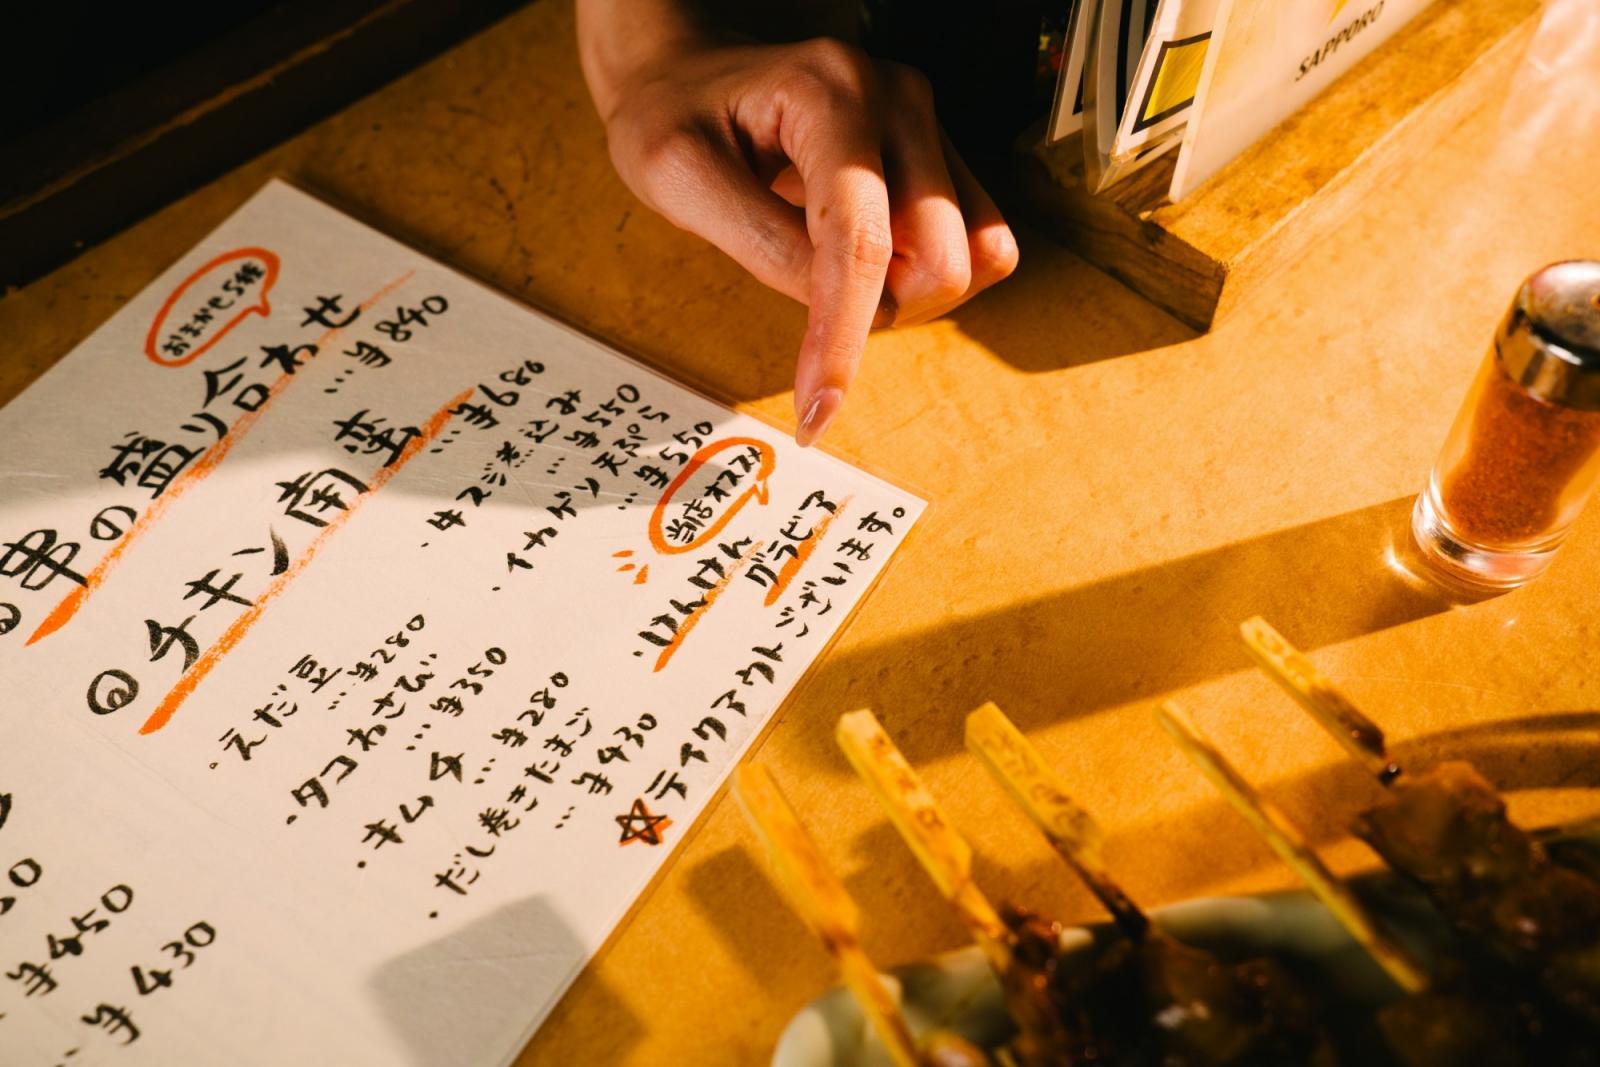 おまかせ5種
串の盛り合わせ
…¥840
チキン南蛮
…¥680
・牛スジ煮込み
…¥550
・イカゲソ天ぷら
…¥550
・えだ豆
…¥280
・タコわさび
…¥350
・キムチ
…¥280
・だし巻きたまご
…¥430
当店オススメ
グラビア
☆テイクアウト
います。
¥450
¥430
SAPPORO